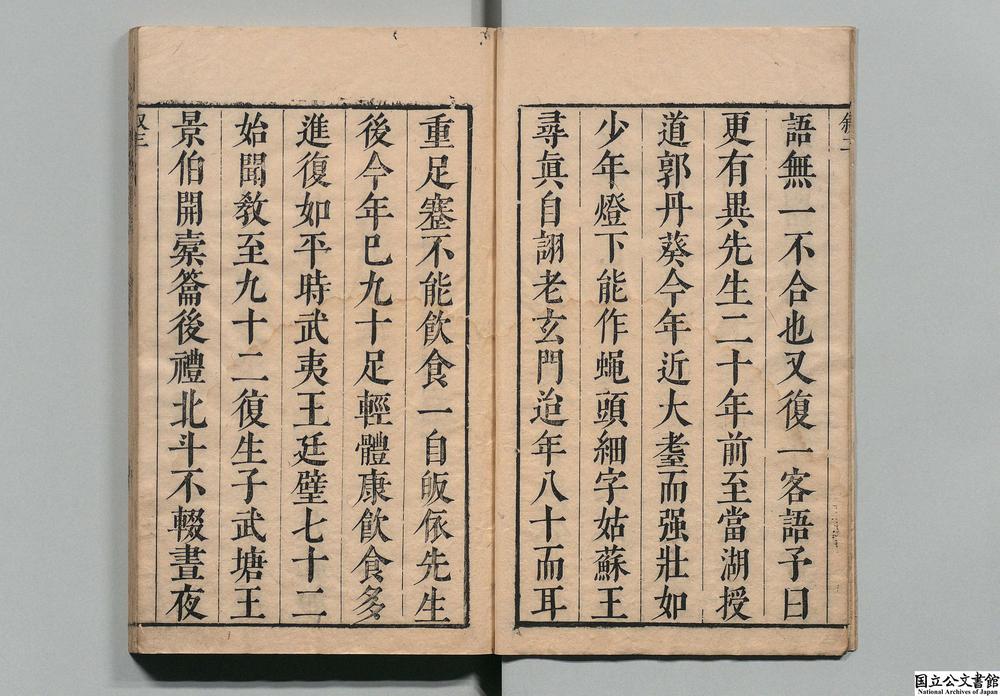 敘二
語無一不合也又復一客語予曰
更有異先生二十年前至當湖授
道郭丹葵今年近大耋而强壯如
少年燈下能作蝇頭細字姑蘇王
尋眞自詡老玄門迨年八十而耳
重足蹇不能飮食一自皈依先生
後今年已九十足輕體康飮食多
進復如平時武夷王廷璧七十二
始聞敎至九十二復生子武塘王
景伯開槖籥後禮北斗不輟晝夜
叙三
国立公文書館
National Archives of Japan